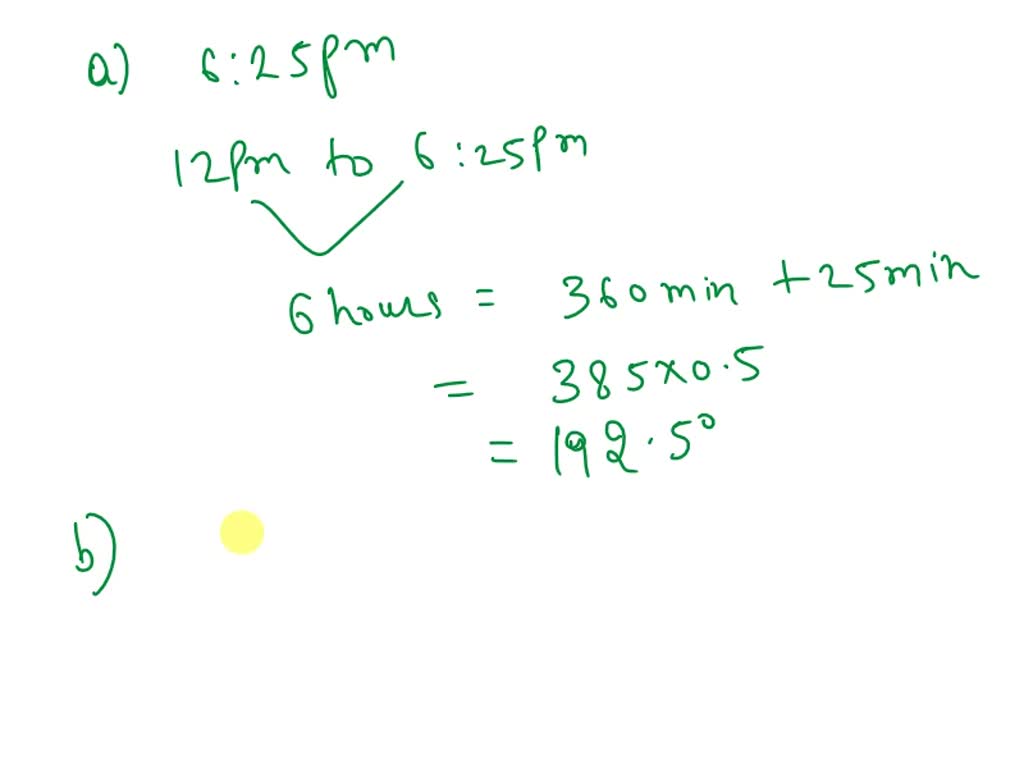 a) 6:25pm
12pm to 6:25pm
6 hours = 360 min + 25 min
= 385 x 0.5
= 192.5°
b)